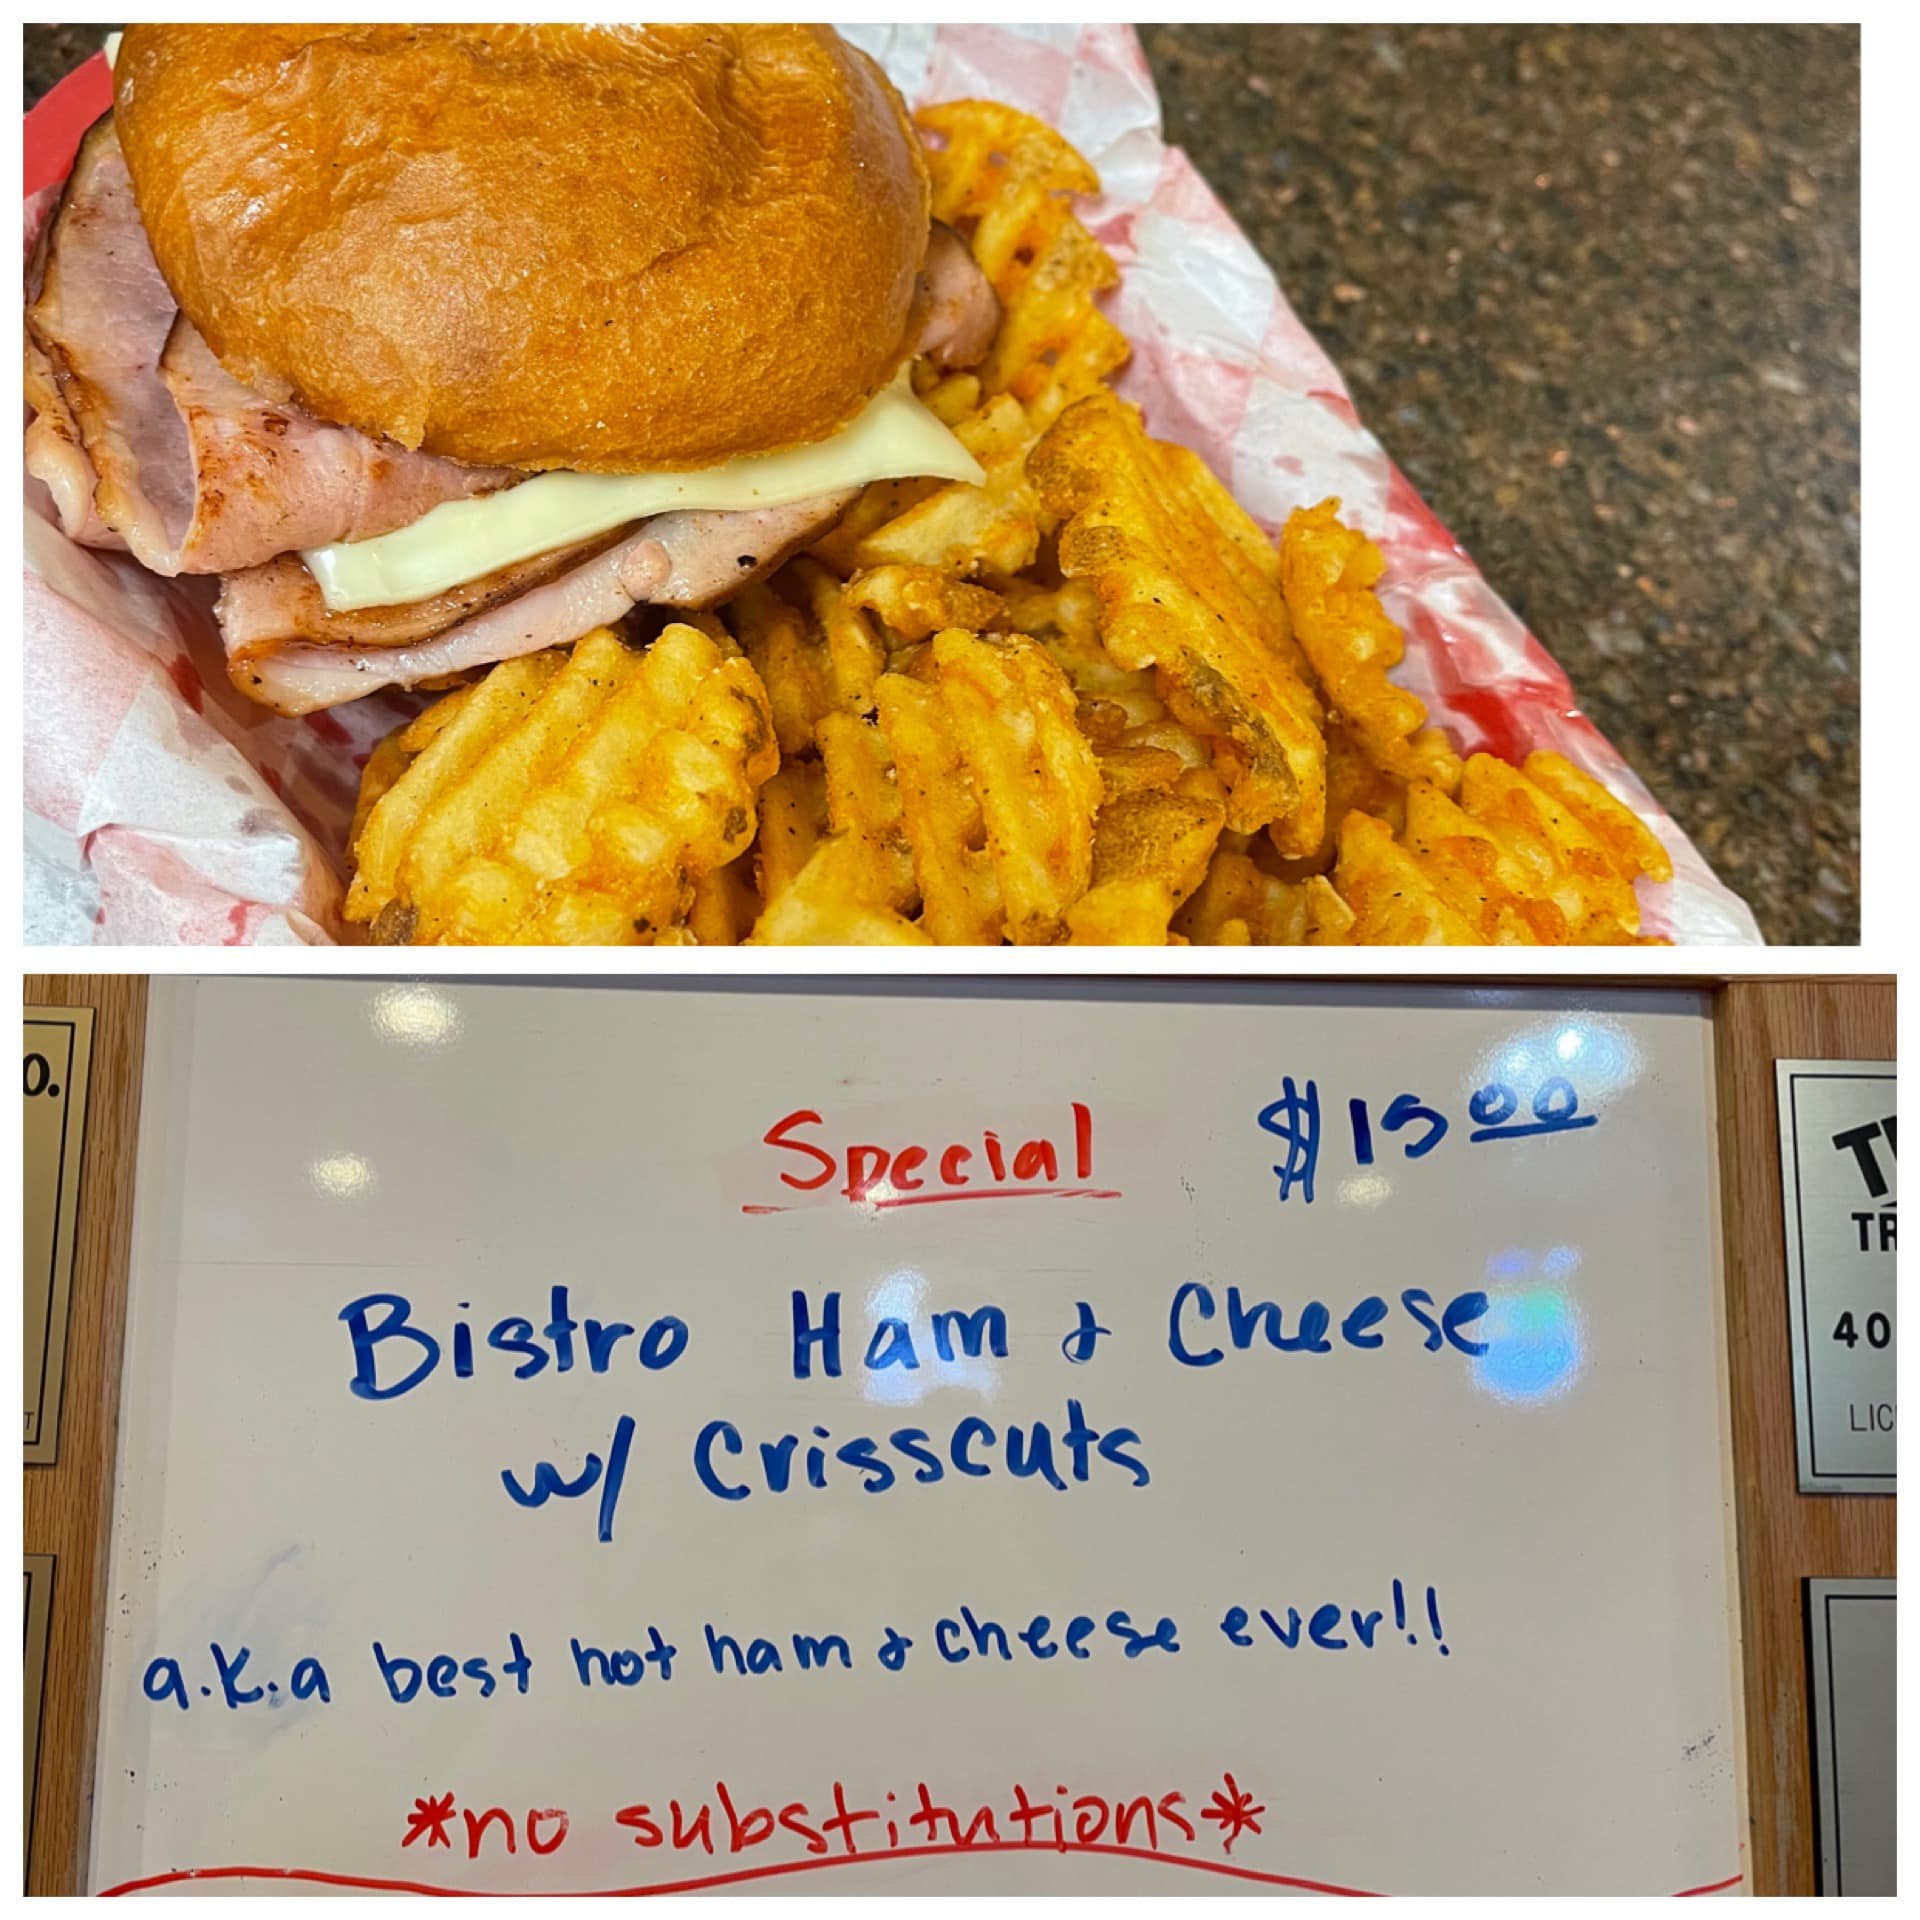 Special $15.00
Bistro Ham & Cheese
w/ Crisscuts
a.k.a best hot ham & cheese ever!!
*no substitutions*
O.
T
TR
40
LIC